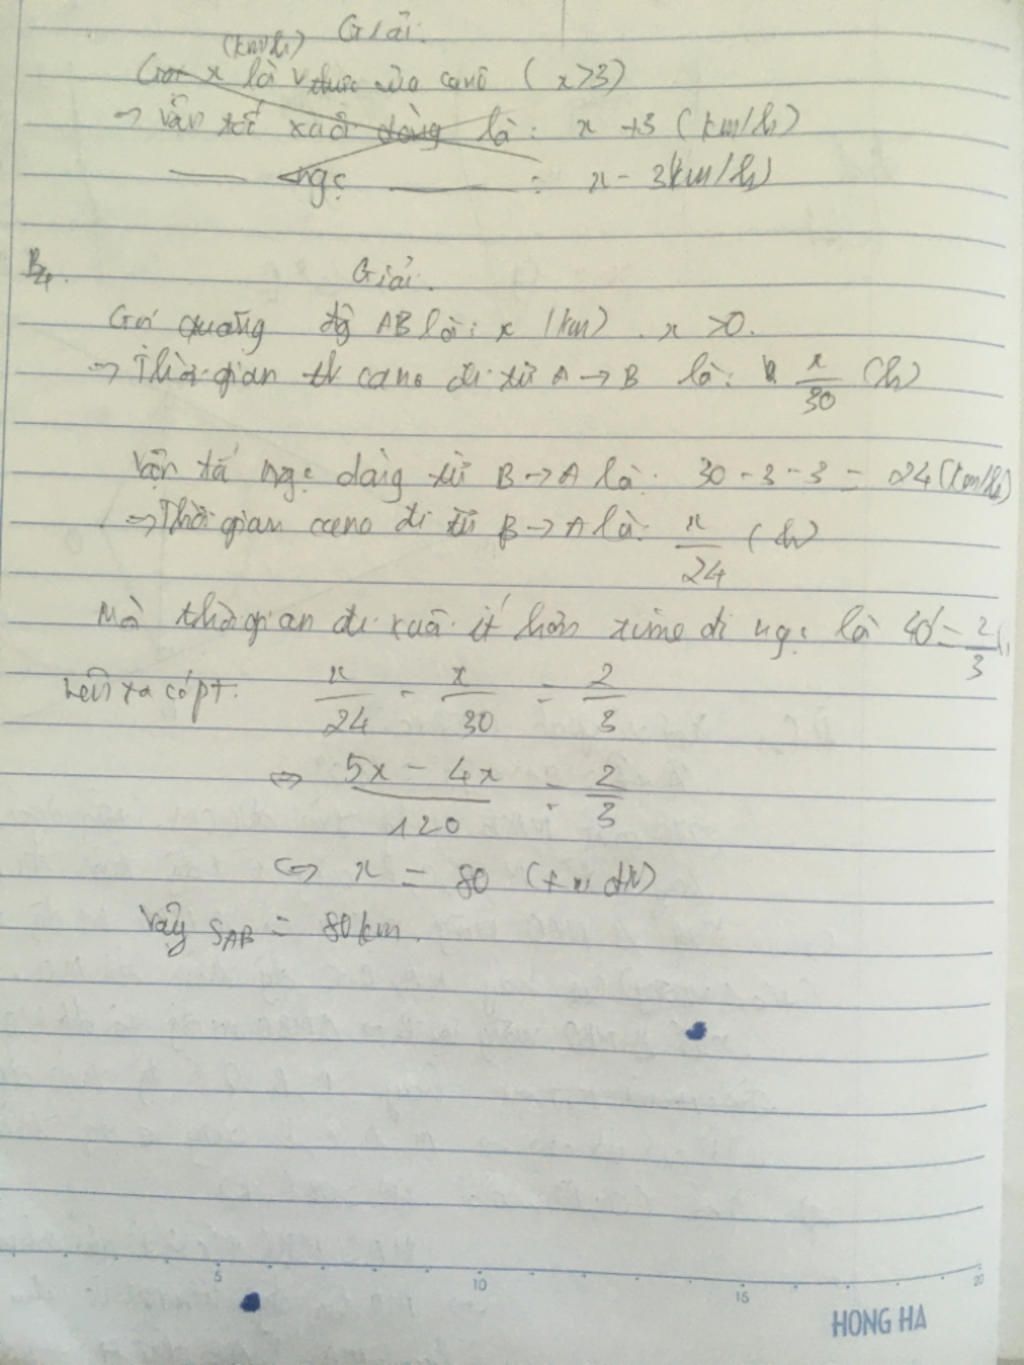 Giải.
(km/h)
Gọi x là v thực của canô (x>3)
→ vận tốc xuôi dòng là: x +3 (km/h)
ngc : x - 3 km/h)
B4. Giải.
Gọi quãng đg AB là: x (km). x >0.
→ Thời gian cano đi từ A → B là: x/30 (h)
Vận tố ngc dòng từ B → A là: 30 - 3 - 3 = 24 (km/h)
→ Thời gian cano đi từ B → A là: x/24 (h)
Mà thời gian đi xuôi ít hơn time đi ngc là 40' = 2/3
nên ta có pt: x/24 - x/30 = 2/3
⇔ 5x - 4x/120 = 2/3
⇔ x = 80 (t/m đk)
Vậy SAB = 80 km.
5 10 15 20
HONG HA